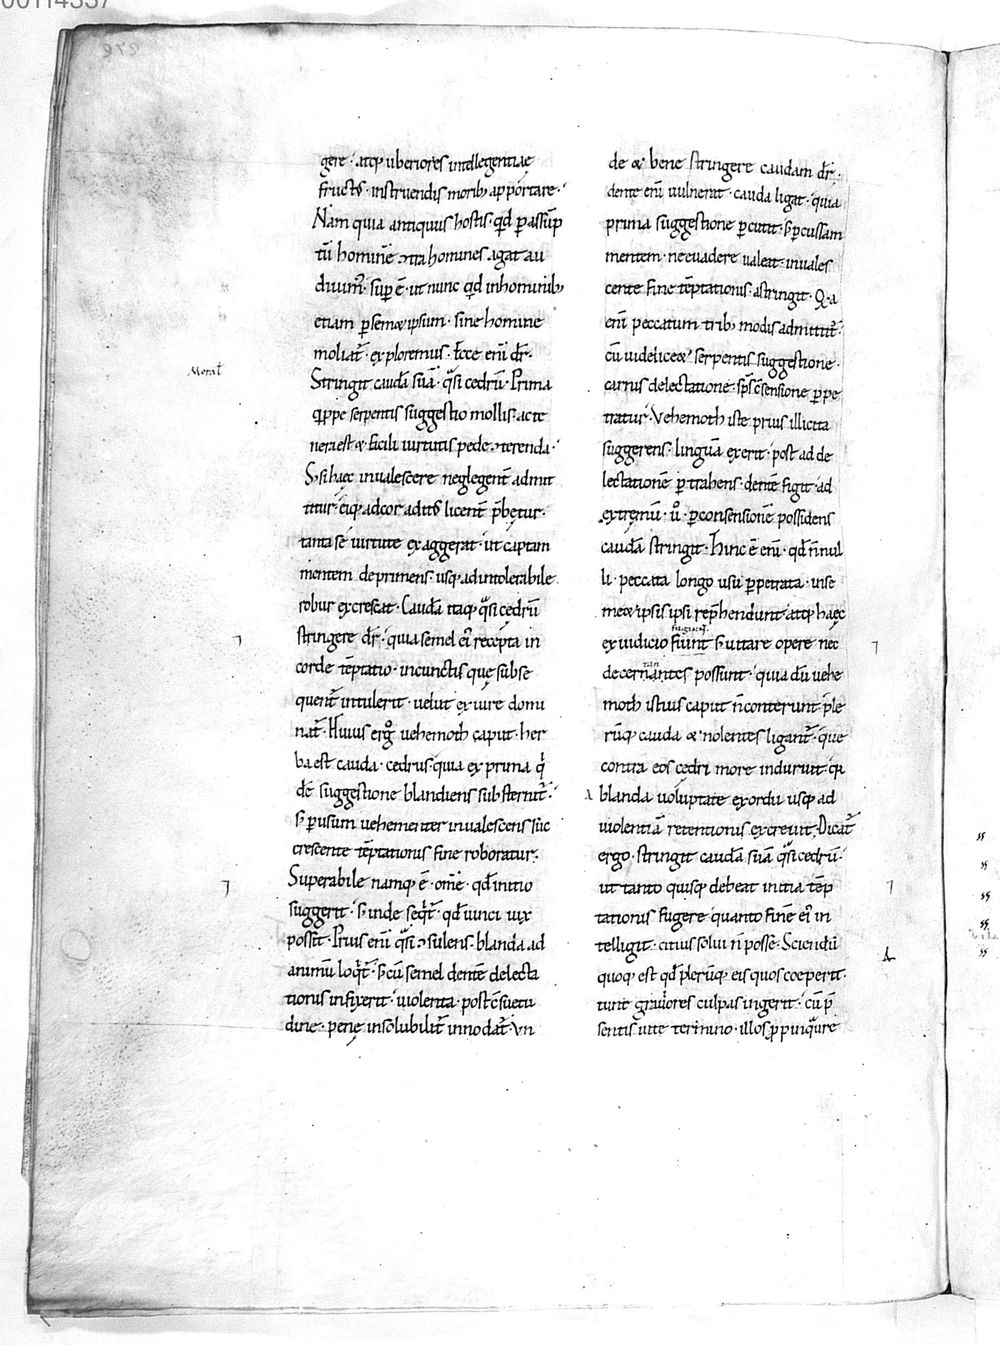 gere · atq; uberiores intellegentiae
fructus · instruendis morib; apportare ·
Nam quia antiquus hostis · qd p assūp
tū hominē ɔtra homines agat au
diuim' · sup ē · ut nunc qd inhominib;
etiam p semet ipsum · sine homine
moliat' · exploremus · Ecce eni dr̄ ·
Moral
Stringit caudā suā · qsi cedrū · Prima
qppe serpentis suggestio mollis · acte
nera est & facili uirtutis pede ɔterenda ·
S; si haec inualescere neglegent' admit
titur · eiq; ad cor aditus licent' p̄betur ·
tanta se uirtute exaggerat · ut captam
mentem deprimens · usq; ad intolerabile
robur excrescat · Caudā itaq; qsi cedrū
stringere dr̄ · quia semel ei' recepta in
corde tēptatio · incunctis que subse
quent' intulerit · uelut ex iure domi
nat' · Huius ergo uehemoth caput · her
ba est cauda · cedrus · quia ex prima q
dē suggestione blandiens substernit' ·
s; p usum uehementer inualescens suc
crescente tēptationis fine roboratur ·
Superabile namq; ē · omē · qd initio
suggerit · s; inde seqt' · qd uinci uix
possit · Prius eni qsi ɔsulens · blanda ad
animū loqt' · s; cū semel dentē delecta
tionis infixerit · uiolenta · post ɔsuetu
dine · pene insolubilit' innodat' · Vn
de & bene stringere caudam dr̄ ·
dente eni uulnerat · cauda ligat · quia
prima suggestione pcutit · s; pcussam
mentem · ne euadere ualeat · inuales
cente fine tēptationis · astringit · Q; a
eni peccatum trib; modis admittit' ·
cū uidelicet serpentis suggestione ·
carnis delectatione · sp̄s ɔsensione ppe
tratur · Vehemoth iste prius illicita
suggerens · linguā exerit · post ad de
lectationē ptrahens · dentē figit · ad
extremū · ū · p consensionē possidens
caudā stringit · Hinc ē eni · qd nnul
li · peccata longo usu ppetrata · inse
met ipsis ipsi rep̄hendunt · atq; haec
ex iudicio fiunt s; uitare opere nec
decernantes possunt · quia dū uehe
moth istius caput n̄ conterunt · ple
rūq; cauda & nolentes ligant' · que
contra eos cedri more induruit · qa
blanda uoluptate exordii usq; ad
uiolentiā retentionis excreuit · Dicat'
ergo · stringit caudā suā qsi cedrū ·
ut tanto quisq; debeat initia tēp
tationis fugere quanto finē ei' in
telligit · citius solui n̄ posse · Sciendū
quoq; est qd plerūq; eis quos coeperit ·
tunc grauiores culpas ingerit · cū p̄
sentis uite termino · illos ppinquare